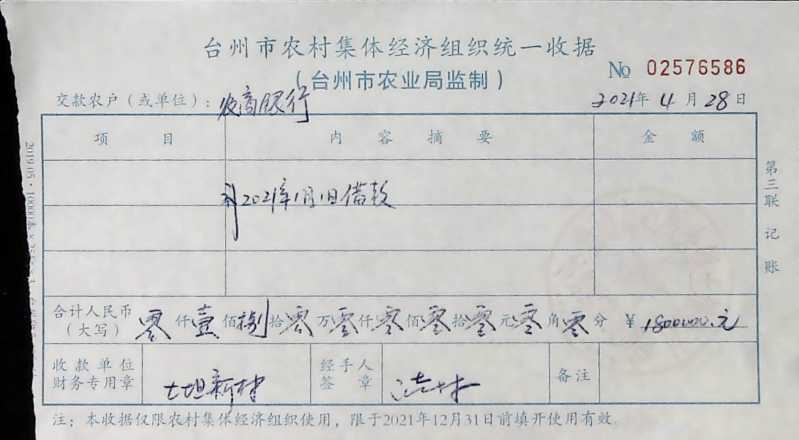 台州市农村集体经济组织统一收据
(台州市农业局监制) No 02576586
交款农户(或单位): 农商银行 2021年 4月 28日
项目 内容摘要 金额
2021年1月1日借款
第三联 记账
合计人民币(大写) 零仟壹佰捌拾零万零仟零佰零拾零元零角零分 ¥ 1800000.元
收款单位财务专用章 土坦新村 经手人签章 备注
注:本收据仅限农村集体经济组织使用,限于2021年12月31日前填开使用有效.